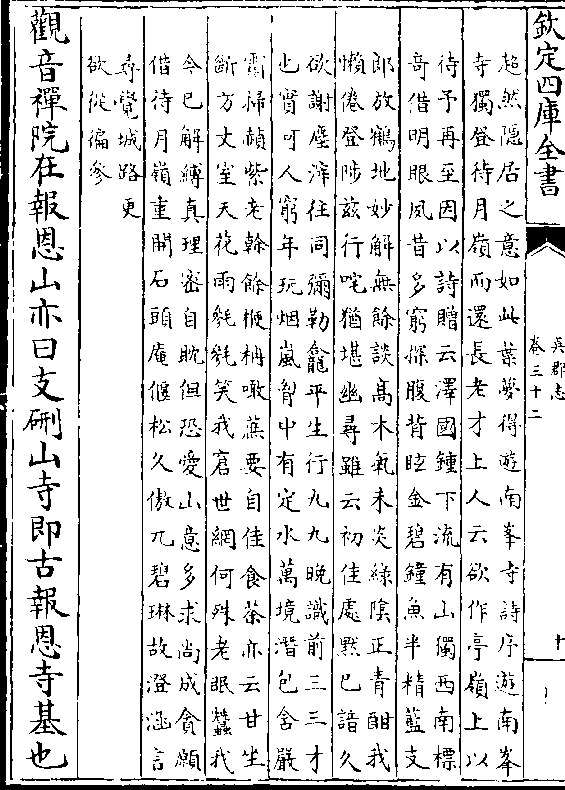 欽定四庫全書
吳郡志
卷三十二
十
超然隐居之意如此葉夢得遊南峯寺詩序遊南峯
寺獨登待月嶺而還長老才上人云欲作亭嶺上以
待予再至因以詩贈云澤國鍾下流有山獨西南標
竒借明眼夙昔多窮探腹背眩金碧鐘魚半精藍支
郎放鶴地妙解無餘談髙木氣未炎綠陰正青酣我
懶倦登陟兹行咤猶堪幽尋雖云初佳處黙已諳久
欲謝塵滓往同彌勒龕平生行九九晚識前三三才
也實可人窮年玩烟嵐胷中有定水萬境潛包含嚴
霜掃頳紫老榦餘楩楠噉蔗要自佳食荼亦云甘坐
斷方丈室天花雨毿毿笑我窘世網何殊老眠蠶我
今已解縛真理密自眈但恐愛山意多求尚成貪願
偕待月嶺重開石頭庵偃松久傲兀碧琳故澄涵言
尋覺城路更
欲從徧參
觀音禪院在報恩山亦曰支硎山寺即古報恩寺基也